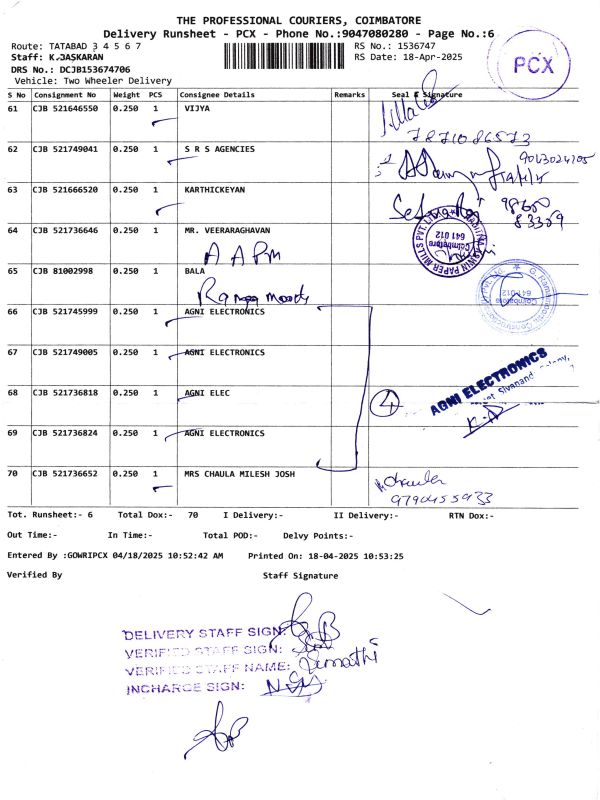 THE PROFESSIONAL COURIERS, COIMBATORE
Delivery Runsheet - PCX - Phone No.:9047080280 - Page No.:6
Route: TATABAD 3 4 5 6 7
RS No.: 1536747
Staff: K.JASKARAN
RS Date: 18-Apr-2025
DRS No.: DCJB153674706
Vehicle: Two Wheeler Delivery
PCX
S No Consignment No Weight PCS Consignee Details Remarks Seal & Signature
61 CJB 521646550 0.250 1 VIJYA
62 CJB 521749041 0.250 1 S R S AGENCIES
9043024205
63 CJB 521666520 0.250 1 KARTHICKEYAN
64 CJB 521736646 0.250 1 MR. VEERARAGHAVAN
A A Pm
641 012
Coimbatore
65 CJB 81002998 0.250 1 BALA
66 CJB 521745999 0.250 1 AGNI ELECTRONICS
67 CJB 521749005 0.250 1 AGNI ELECTRONICS
68 CJB 521736818 0.250 1 AGNI ELEC
4
AGNI ELECTRONICS
69 CJB 521736824 0.250 1 AGNI ELECTRONICS
70 CJB 521736652 0.250 1 MRS CHAULA MILESH JOSH
Chaula
9790455933
Tot. Runsheet:- 6 Total Dox:- 70 I Delivery:- II Delivery:- RTN Dox:-
Out Time:- In Time:- Total POD:- Delvy Points:-
Entered By :GOWRIPCX 04/18/2025 10:52:42 AM Printed On: 18-04-2025 10:53:25
Verified By Staff Signature
DELIVERY STAFF SIGN:
VERIFIED STAFF SIGN:
VERIFIED STAFF NAME:
INCHARGE SIGN: